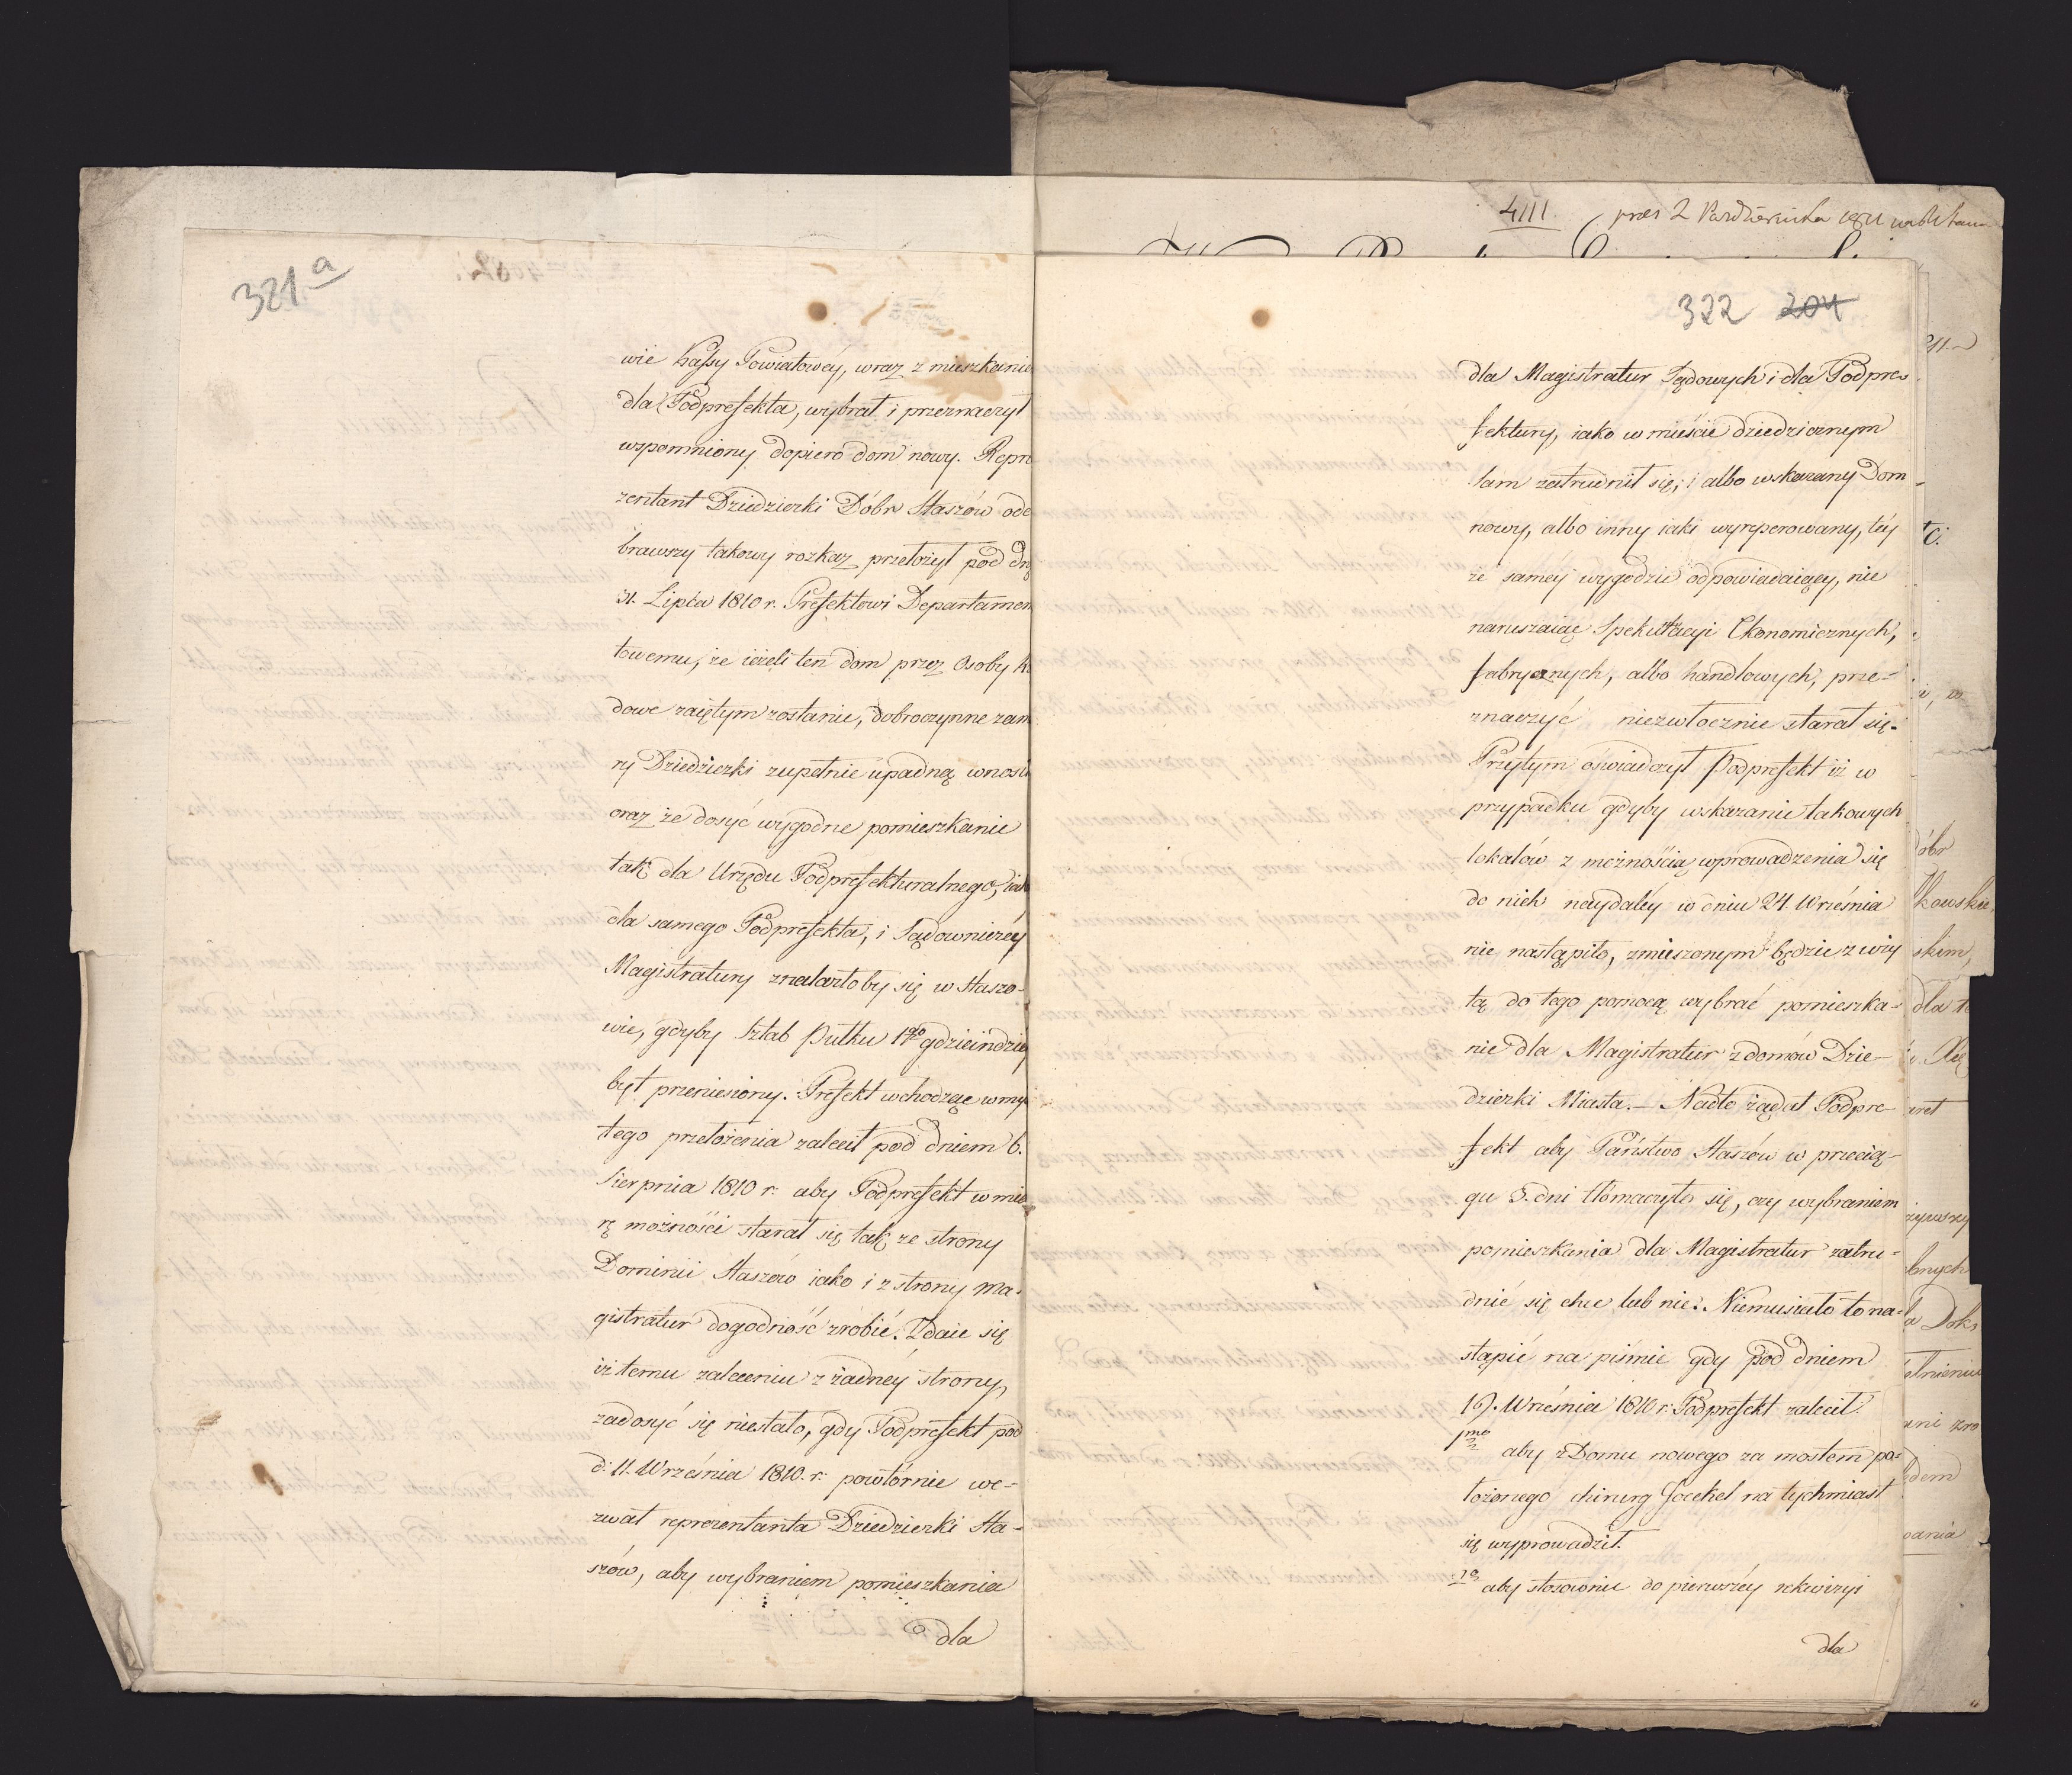 321a
wie kassy Powiatowéy, wraz z mieszkanie
dla Podprefekta, wybrał i przeznaczył
wspomniony dopiero dom nowy. Repre
zentant Dziedziczki Dóbr Staszów ode
brawszy takowy rozkaz przełożył pod dn
31. Lipca 1810 r. Prefektowi Departamen
towemu, że ieżeli ten dom przez Osoby
dowe zaiętym zostanie, dobroczynne zam
ry Dziedziczki zupełnie upadną wnosi
oraz że dosyć wygodne pomieszkanie
tak dla Urzędu Podprefekturalnego, iak
dla samego Podprefekta, i Sądowniczéy
Magistratury znalazłoby się w Staszo-
wie, gdyby Sztab Pułku 1go gdzieindzie
był przeniesiony. Prefekt wchodząc w my
tego przełożenia zalecił pod dniem 6.
Sierpnia 1810 r. aby Podprefekt w mia
rę możności starał się tak ze strony
Dominii Staszow iako i z strony Ma-
gistratur dogodność zrobić. Zdaie się
iż temu zaleceniu z żadney strony,
zadosyć się niestało, gdy Podprefekt pod
d: 11. Września 1810. r. powtórnie we-
zwał reprezentanta Dziedziczki Sta-
szów, aby wybraniem pomieszkania
dla
4111. przez 2 Pazdziernika 1811
322 204
dla Magistratur Sądowych i dla Podpre-
fektury, iako w mieście dziedzicznym
sam zatrudnił się, i albo wskazany Dom
nowy, albo inny iaki wyreperowany, téy
że saméy wygodzie odpowiadaiący, nie
naruszaiąc Spekulacyi Ekonomicznych,
fabrycznych, albo handlowych, prze-
znaczyć niezwłocznie starał się.
Przytym oświadczył Podprefekt iż w
przypadku gdyby wskazanie takowych
lokalów z możnością wprowadzenia się
do nich naydaléy w dniu 24. Września
nie nastąpiło, zmuszonym będzie z wziy
tą do tego pomocą wybrać pomieszka-
nie dla Magistratur z domów Dzie-
dziczki Miasta. – Nadto żądał Podpre-
fekt aby Państwo Staszów w przecią-
gu 3. dni tłómaczyło się, czy wybraniem
pomieszkania dla Magistratur zatru-
dnić się chce lub nie. Niemusiało to na-
stąpić na piśmie gdy pod dniem
19. Września 1810 r. Podprefekt zalecił.
1mo aby z Domu nowego za mostem po-
łożonego chirurg Goeckel na tychmiast
się wyprowadził.
2o aby stosownie do pierwszéy rekwizycyi
dla